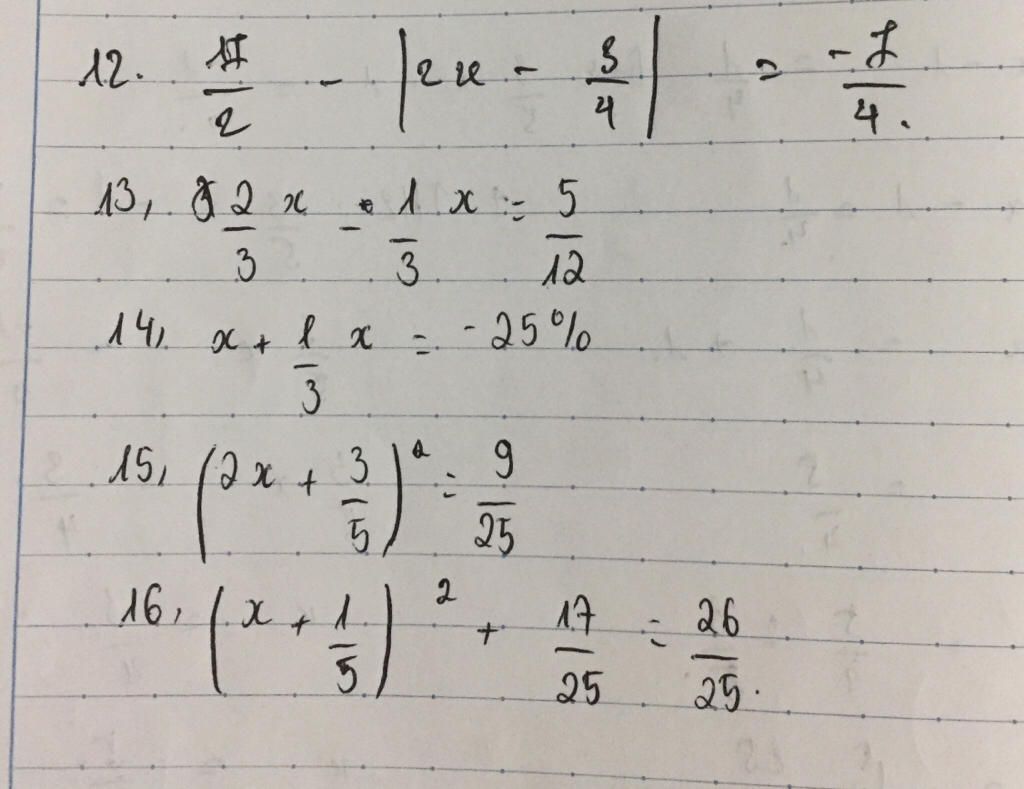 12. 17/2 - |2x - 3/4| = -7/4.
13, 2/3 x - 1/3 x = 5/12
14, x + 1/3 x = -25%
15, (2x + 3/5)² = 9/25
16, (x + 1/5)² + 17/25 = 26/25.